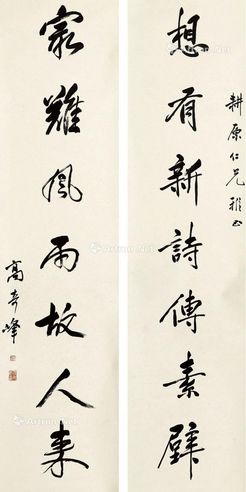 耕原仁兄雅正
想有新詩傳素壁
㝡難風雨故人來
高奇峰